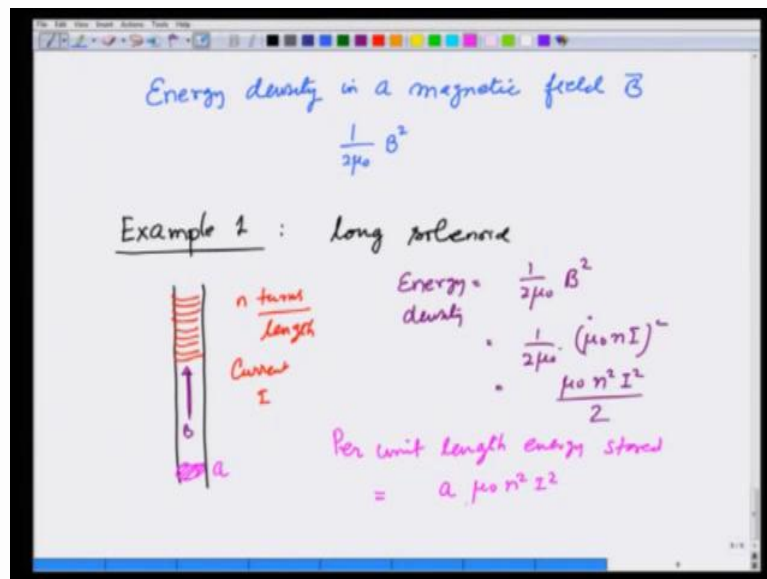 File Edit View Insert Actions Tools Help
Energy density in a magnetic field B⃗
1/2μ₀ B²
Example 1 : long solenoid
n turns/length
Current
I
B
a
Energy density = 1/2μ₀ B²
= 1/2μ₀ · (μ₀nI)²
= μ₀ n² I²/2
Per unit length energy stored
= a μ₀ n² I²